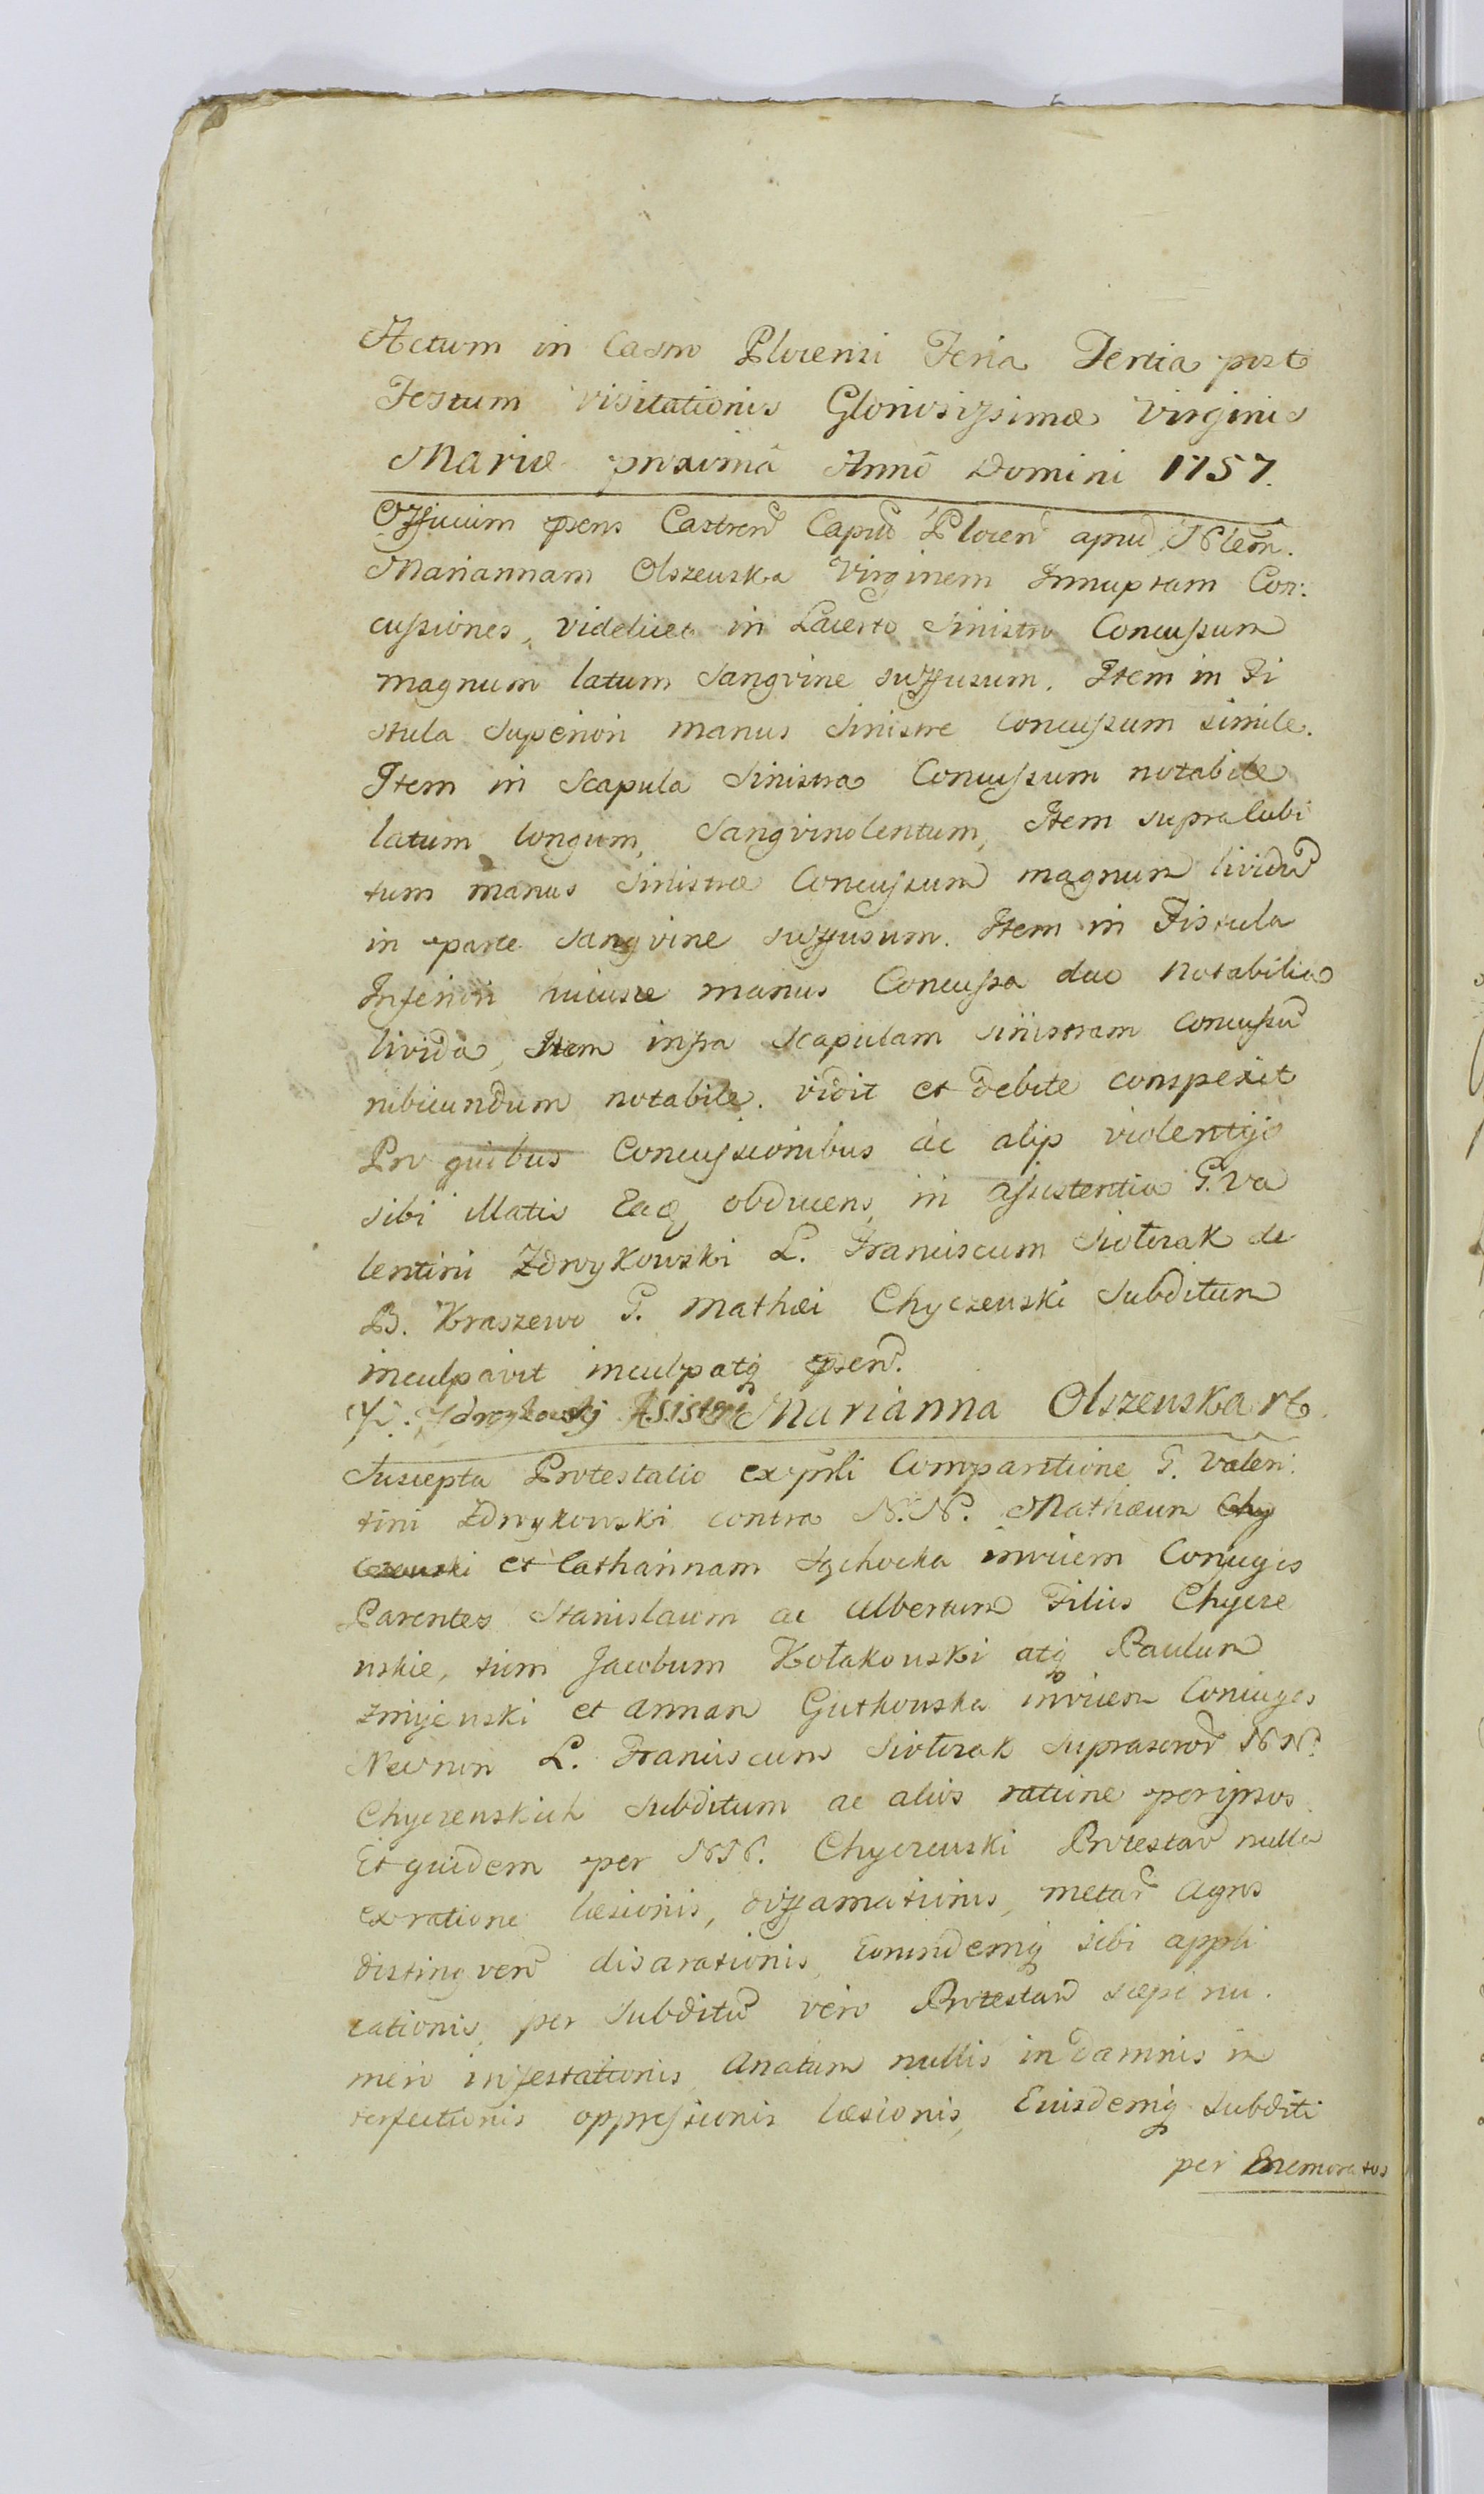 Actum in Castro Plocensi Feria Tertia post
Festum Visitationis Gloriosissimæ Virginis
Mariæ proximâ Annô Domini 1757.
Officium psens Castren Capit Plocen apud Nlem.
Mariannam Olszewska Virginem Innuptam Con:
cussiones, videlicet in Lacerto Sinistro Concussum
magnum latum Sangvine suffusum. Item in Fi
stula Superiori manus Sinistre Concussum simile.
Item in Scapula Sinistra Concussum notabile
latum longum, Sangvinolentum, Item supra Cubi
tum manus Sinistræ Concussum magnum lividu
in parte sangvine suffusum. Item in Fistula
Inferiori huiusce manus Concussa duo notabilia
livida, Item infra Scapulam sinistram concussu
rubicundum notabile. vidit et debite conspexit
Pro quibus Concussionibus ac alijs violentijs
sibi illatis Eaq obducens, in assistentia G. Va
lentini Zdroykowski L. Franciscum Siołczak de
B. Kraszewo G. Mathæi Chyczewski Subditum
inculpavit inculpatq psen.
Zdroykowsky Asisten Marianna Olszewska
Suscepta Protestatio ex prli Comparitione G. Valen:
tini Zdroykowski contra N.N. Mathæum Chy
czewski et Catharinnam Sychocka invicem Conjuges
Parentes Stanislaum ac Albertum Filios Chycze
wskie, tum Jacobum Kołakowski atq Paulum
Zmijewski et Annam Gutkowska invicem Coniuges
Necnon L. Franciscum Siołczak suprascrod NN.
Chyczewskich Subditum ac alios ratione per ipsos
Et quidem per NN. Chyczewski Protestan nulla
ex ratione læsionis, diffamationis, metar Agros
distingven disarationis, Eorundemq sibi appli
cationis, per Subditu vero Protestan sæpe nu.
mero infestationis Anatum nullis in damnis in
terfectionis oppressionis læsionis, Eiusdemq Subditi
per Enemoratos